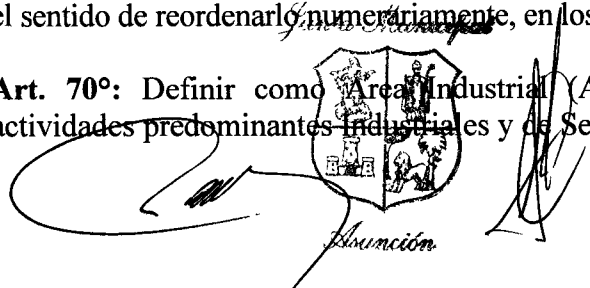 el sentido de reordenarlo numerariamente, en los
Junta Municipal
Art. 70°: Definir como Area Industrial (A
actividades predominantes Industriales y de Se
Asunción